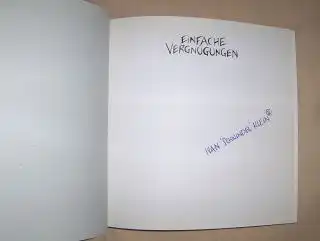 EINFACHE
VERGNÜGUNGEN
IVAN 'SCHWINDEL' KLEIN